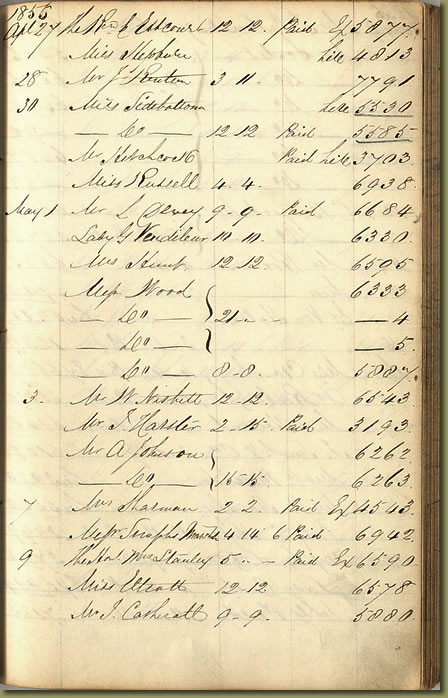 1856
Apl 27 The Revd E Estcourt 12 - 12 - Paid Ex 5877.
Miss hire 4813
28 Mr J 3 11 - 7791
30 Miss Sidebottom hire 5530
— Do — 12 12 Paid 5585
Mr Hitchcock Paid hire 3703
Miss Russell 4 - 4 - 6938
May 1 Mr L Devey 9 - 9 - Paid 6684
Lady G 10 - 10 - 6330
Mrs Hunt 12 - 12 - 6595
Messr Wood 6333
— Do — 21 - - — 4
— Do — — 5.
— Do — 8 - 8 - 5887
3 Mr W Nisbett 12 - 12 - 6543
Mr J. Hassler 2 - 15 - Paid 3193
Mr A Johnson 6262
— Do — 15 - 15 - 6263
7 Mrs Sharman 2 2 - Paid Ex 4543
Messr 4 14 6 Paid 6942
9 The Honl Mrs Stanley 5 - - — Paid Ex 6590
Miss Elliott 12 - 12 6578
Mr J. 9 - 9 - 5880